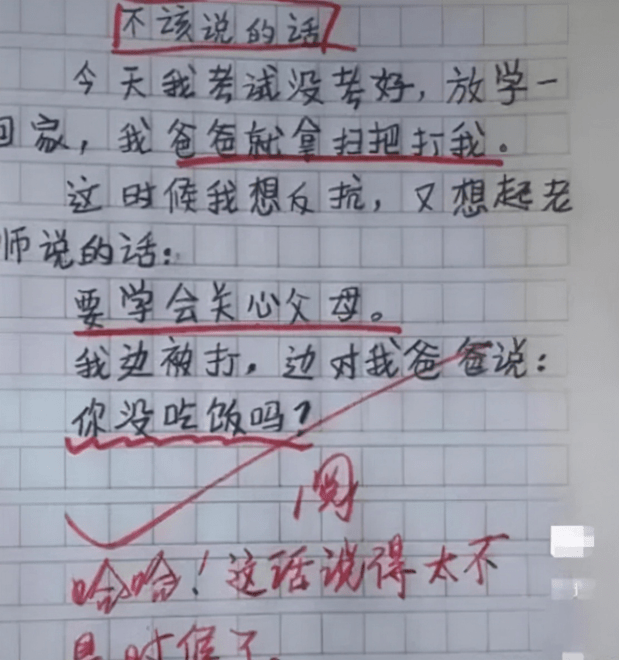 不该说的话
今天我考试没考好，放学一
回家，我爸爸就拿扫把打我。
这时候我想反抗，又想起老
师说的话：
要学会关心父母。
我边被打，边对我爸爸说：
你没吃饭吗？
阅
哈哈！这话说得太不
是时候了.